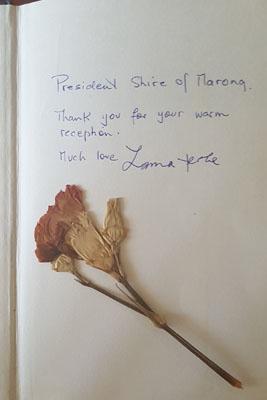 President Shire of Marong.
Thank you for your warm
reception.
Much love Lama Yeshe